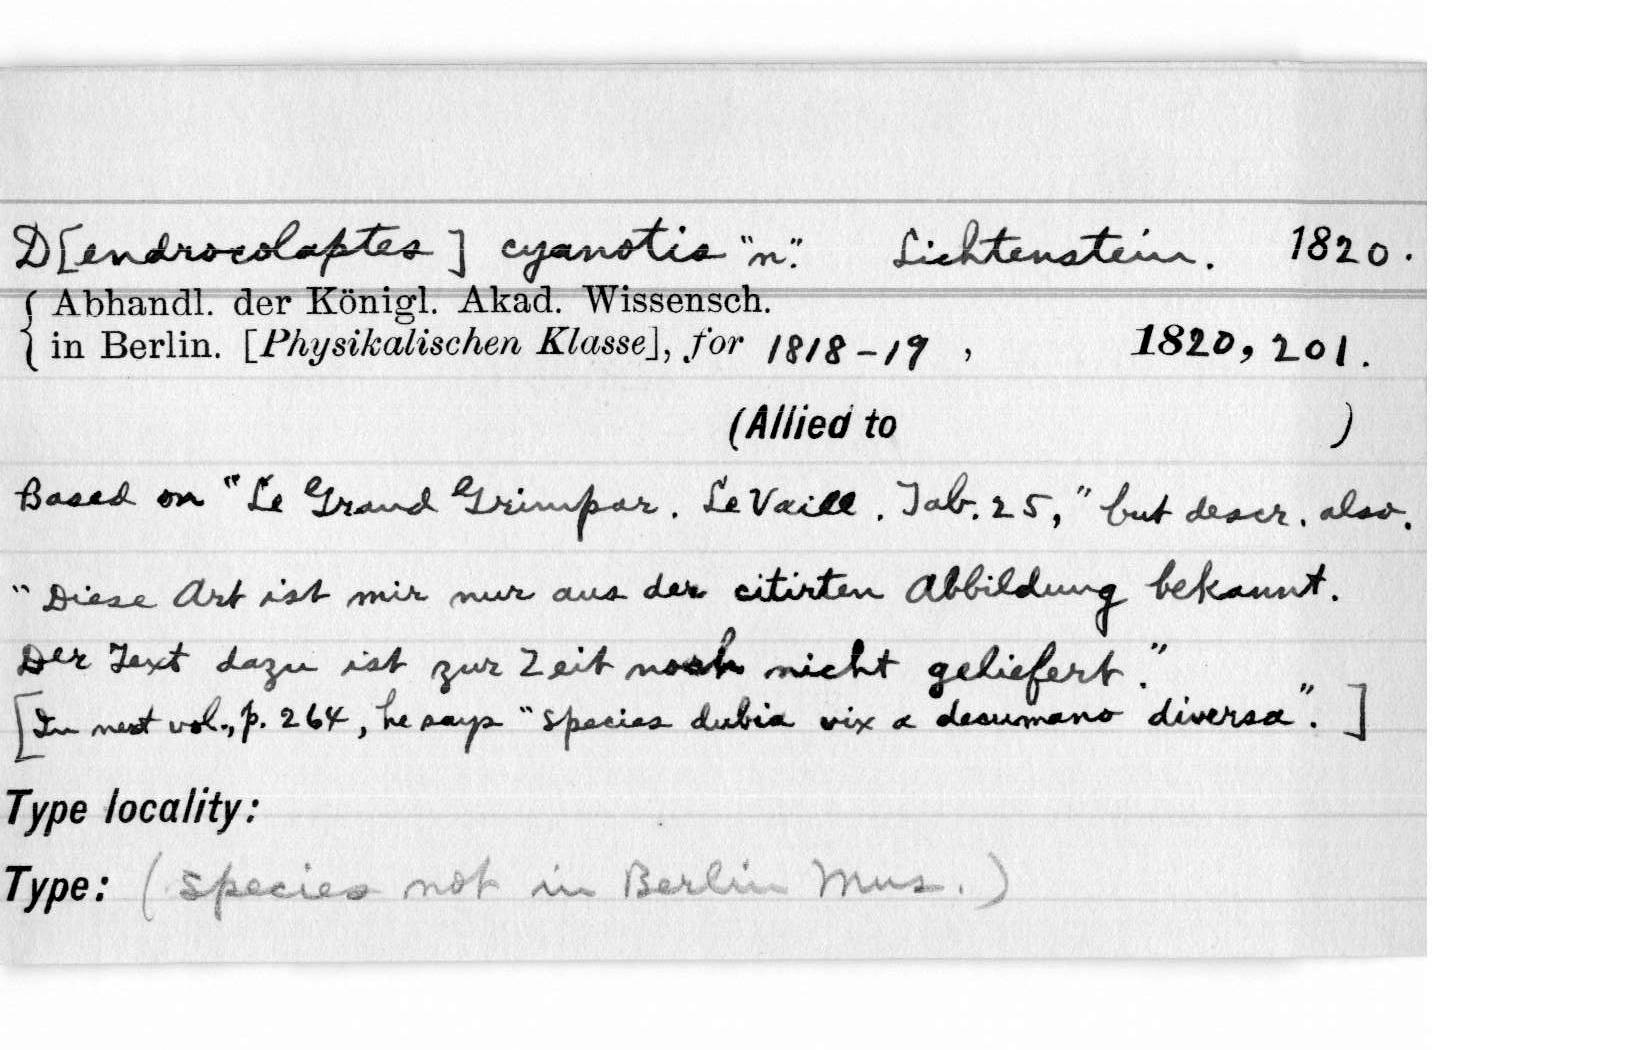 D[endrocolaptes] cyanotis "n". Lichtenstein. 1820.
{ Abhandl. der Königl. Akad. Wissensch.
in Berlin. [Physikalischen Klasse], for 1818-19, 1820, 201.
(Allied to )
Based on "Le Grand Grimpar. Le Vaill. Tab. 25," but descr. also.
"Diese Art ist mir nur aus der citirten Abbildung bekannt.
Der Text dazu ist zur Zeit noch nicht geliefert."
[In next vol., p. 264, he says "species dubia vix a decumano diversa".]
Type locality:
Type: (Species not in Berlin Mus.)